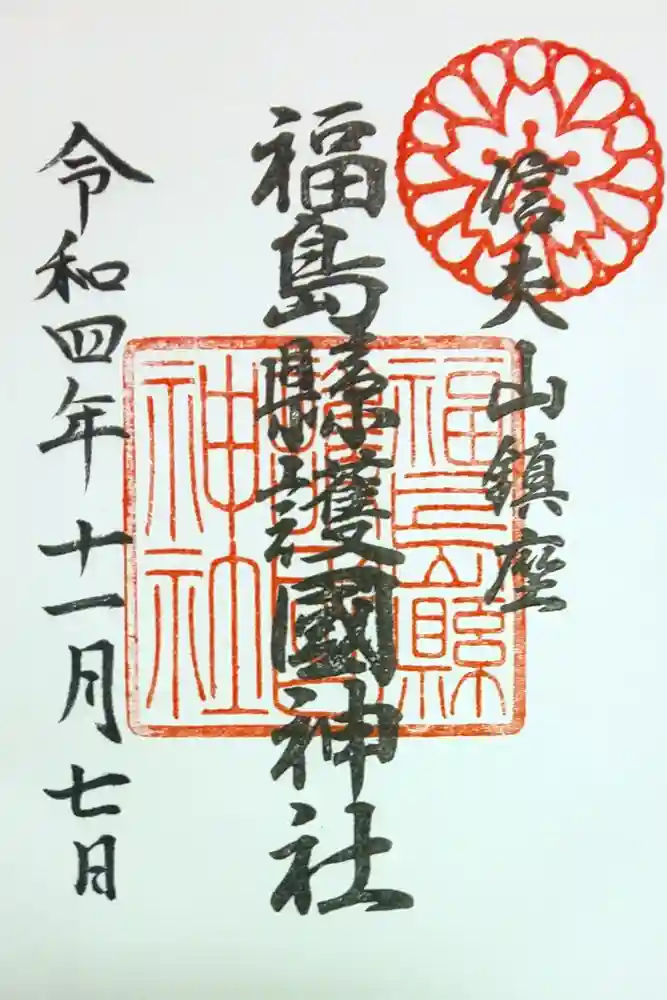 信夫山鎮座
福島縣護國神社
令和四年十一月七日
福島縣
護國
神社